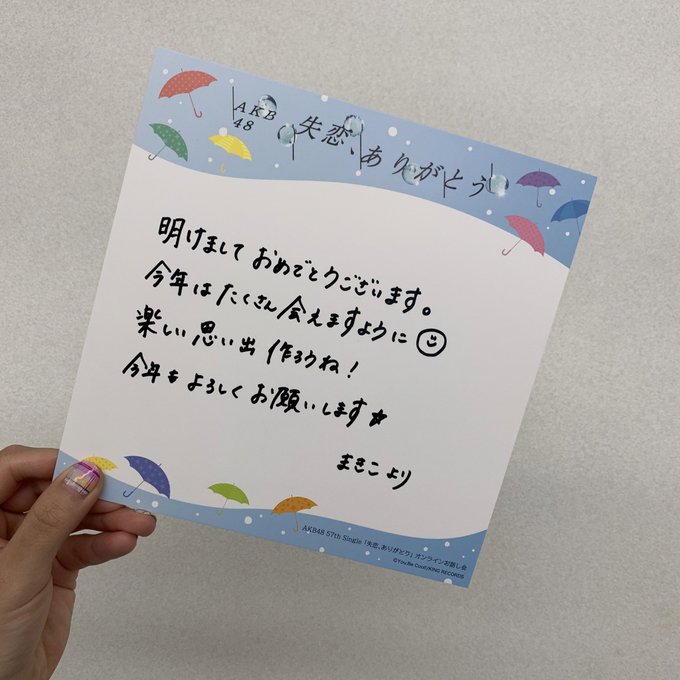 AKB
48
失恋、ありがとう
明けましておめでとうございます。
今年はたくさん会えますように
楽しい思い出作ろうね！
今年もよろしくお願いします☆
まきこより
AKB48 57th Single「失恋、ありがとう」オンラインお話し会
©You,Be Cool!/KING RECORDS